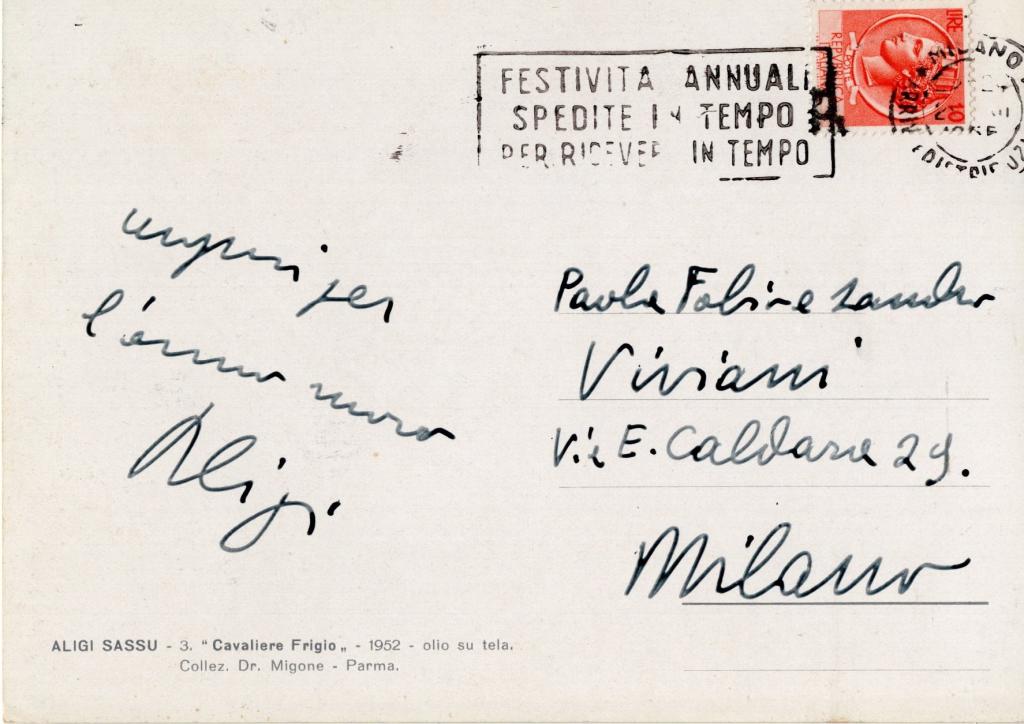 FESTIVITA ANNUALI
SPEDITE IN TEMPO
PER RICEVER IN TEMPO
LIRE 10
MILANO
auguri per
l'anno nuovo
Aligi
Paola Fabi e Sandro
Viviani
Via E. Caldara 29.
Milano
ALIGI SASSU - 3. "Cavaliere Frigio„ - 1952 - olio su tela.
Collez. Dr. Migone - Parma.